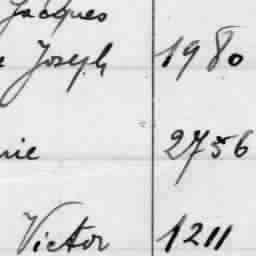 Jacques
Joseph 1980
nie 2756
Victor 1211